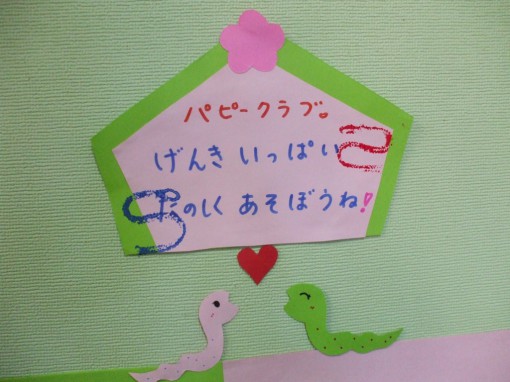 パピークラブ。
げんき いっぱい
たのしく あそぼうね!